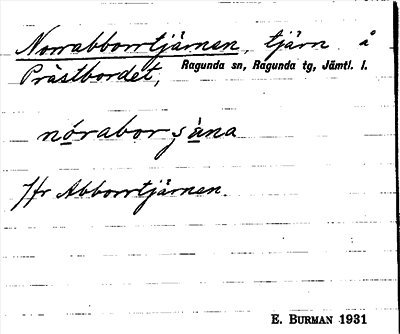 Norrabborrtjärnen, tjärn å
Prästbordet, Ragunda sn, Ragunda tg, Jämtl. l.
nórabor ȿàna
Jfr Abborrtjärnen.
E. BURMAN 1931